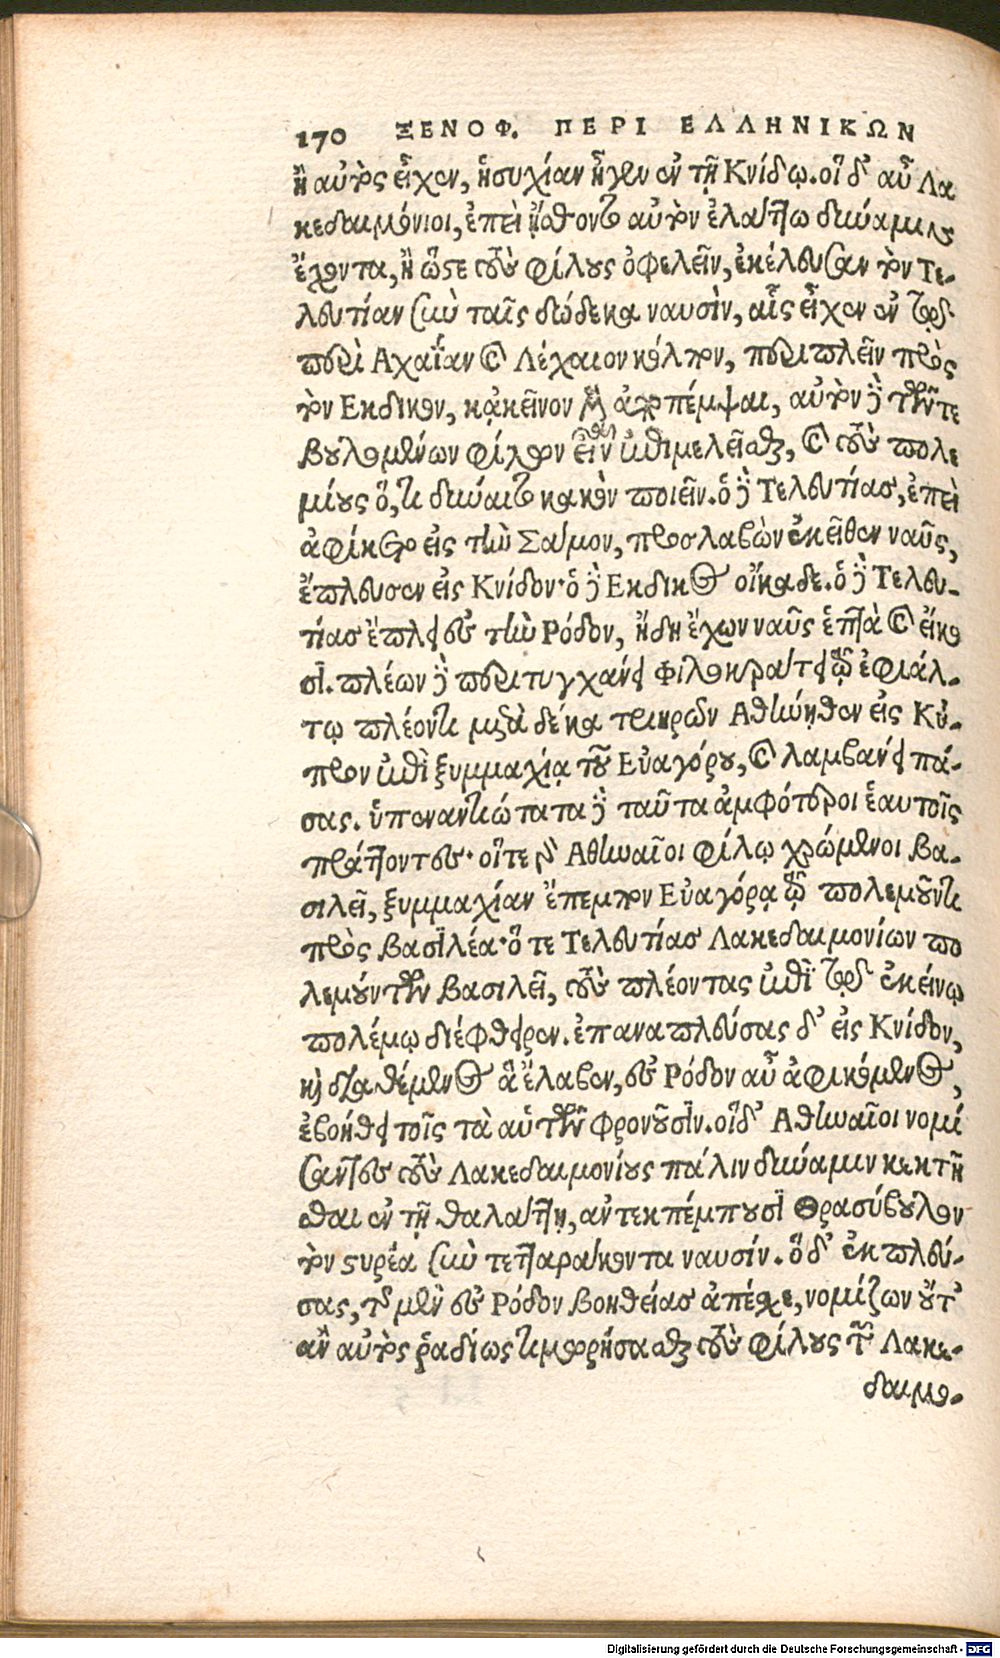 170 ΞΕΝΟΦ. ΠΕΡΙ ΕΛΛΗΝΙΚΩΝ
ἢ αὐτὸς εἶχεν, ἡσυχίαν ἦγεν ἐν τῇ Κνίδῳ. οἱ δ' αὖ Λα
κεδαιμόνιοι, ἐπεὶ ᾔσθοντο αὐτὸν ἐλάττω δύναμιν
ἔχοντα, ἢ ὥστε τοὺς φίλους ὀφελεῖν, ἐκέλευσαν τὸν Τε-
λευτίαν σὺν ταῖς δώδεκα ναυσὶν, αἷς εἶχεν ἐν τῷ
περὶ Ἀχαΐαν καὶ Λέχαιον κόλπον, περιπλεῖν πρὸς
τὸν Εκδικον, κἀκεῖνον μὲν ἀποπέμψαι, αὐτὸν δὲ τῶν τε
βουλομένων φίλων εἶναι ἐπιμελεῖσθαι, καὶ τοὺς πολε
μίους ὅ, τι δύναιτο κακὸν ποιεῖν. ὁ δὲ Τελευτίας, ἐπεὶ
ἀφίκετο εἰς τὴν Σάμον, προσλαβὼν ἐκεῖθεν ναῦς,
ἔπλευσεν εἰς Κνίδον· ὁ δὲ Εκδικος οἴκαδε. ὁ δὲ Τελευ-
τίας ἔπλει ἐς τὴν Ρόδον, ἤδη ἔχων ναῦς ἑπτὰ καὶ εἴκο
σι. πλέων δὲ περιτυγχάνει Φιλοκράτει τῷ ἐφιάλ-
τῳ πλέοντι μετὰ δέκα τριηρῶν Ἀθήνηθεν εἰς Κύ-
προν ἐπὶ ξυμμαχίᾳ τοῦ Εὐαγόρου, καὶ λαμβάνει πά-
σας. ὑπεναντιώτατα δὲ ταῦτα ἀμφότεροι ἑαυτοῖς
πράττοντες· οἵτε γὰρ Ἀθηναῖοι φίλῳ χρώμενοι βα-
σιλεῖ, ξυμμαχίαν ἔπεμπον Εὐαγόρᾳ τῷ πολεμοῦντι
πρὸς βασιλέα· ὅ τε Τελευτίας Λακεδαιμονίων πο
λεμούντων βασιλεῖ, τοὺς πλέοντας ἐπὶ τῷ ἐκείνῳ
πολέμῳ διέφθειρεν. ἐπαναπλεύσας δ' εἰς Κνίδον,
καὶ διαθέμενος ἃ ἔλαβεν, ἐς Ρόδον αὖ ἀφικόμενος,
ἐβοήθει τοῖς τὰ αὑτῶν φρονοῦσιν. οἱ δ' Ἀθηναῖοι νομί
σαντες τοὺς Λακεδαιμονίους πάλιν δύναμιν κεκτῆ
σθαι ἐν τῇ θαλάττῃ, ἀντεκπέμπουσι Θρασύβουλον
τὸν στυρέα σὺν τετταράκοντα ναυσίν. ὁ δ' ἐκπλεύ-
σας, τῆς μὲν ἐς Ρόδον βοηθείας ἀπέσχε, νομίζων οὔτ'
ἂν αὐτὸς ῥαδίως τιμωρήσασθαι τοὺς φίλους τῶν Λακε-
δαιμο-
Digitalisierung gefördert durch die Deutsche Forschungsgemeinschaft - DFG